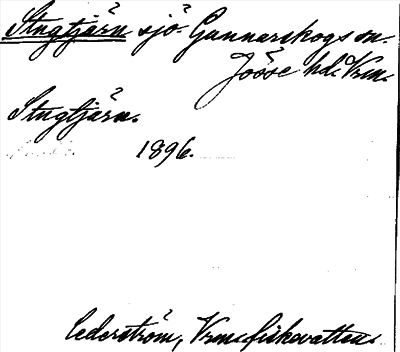 Stugtjärn sjö. Gunnarskogs sn.
Jösse hd. Vrm.
Stugtjärn.
1896.
Cederström, Vrms fiskevatten.